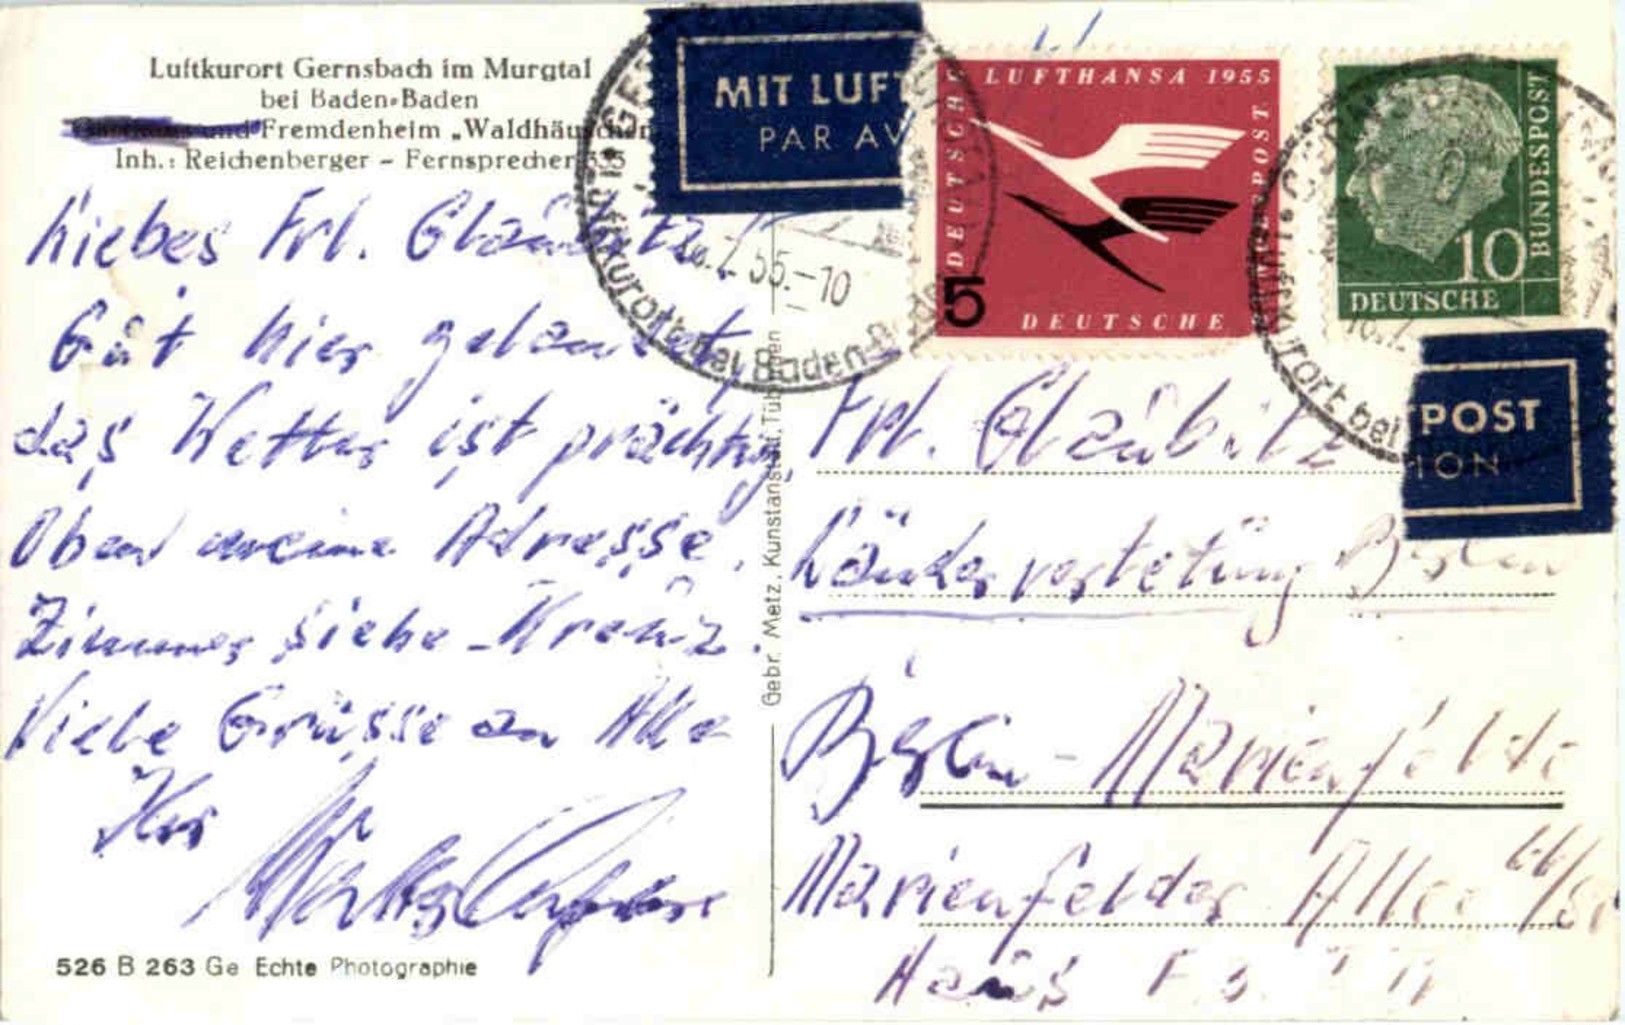 Luftkurort Gernsbach im Murgtal
bei Baden-Baden
und Fremdenheim „Waldhäuschen
Inh.: Reichenberger - Fernsprecher 535
Liebes Frl. Glaubitz!
Gut hier gelandet,
das Wetter ist prächtig,
Oben meine Adresse,
Zimmer siehe Kreuz.
Viele Grüsse an Alle
Ihr
526 B 263 Ge Echte Photographie
Gebr. Metz, Kunstanstalt, Tübingen
MIT LUFT
PAR AV
55.-10
Luftkurort bei Baden-Baden
LUFTHANSA 1955
DEUTSCHE
BUNDESPOST
5
DEUTSCHE
10
BUNDESPOST
DEUTSCHE
urort bei
TPOST
ION
Frl. Glaubitz
Ländervertetung Berlin
Berlin - Marienfelde
Marienfelder Allee 66/
Haus F.